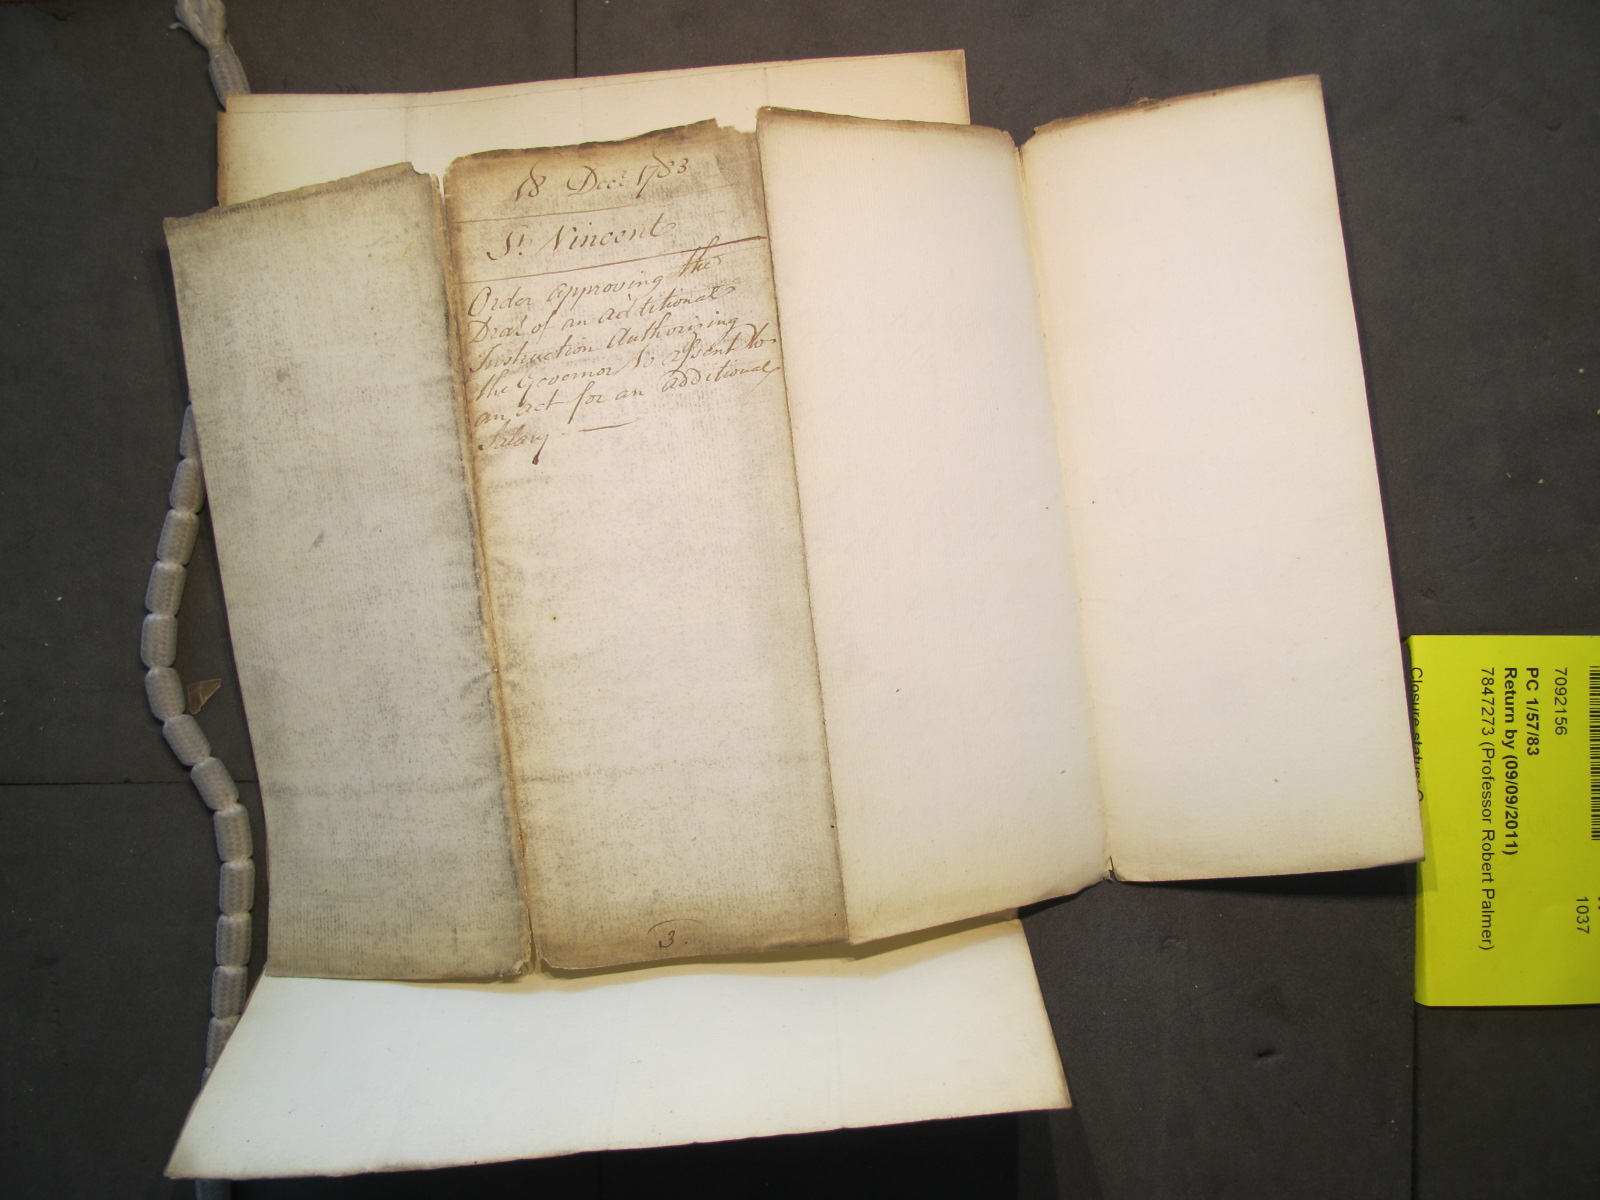 18 Decr 1783
St. Vincent
Order approving the
Drat of an additional
Instruction Authorising
the Governor to assent to
an act for an additional
Salary
3.
7092156
PC 1/57/83
Return by (09/09/2011)
7847273 (Professor Robert Palmer)
1037
Closure status: